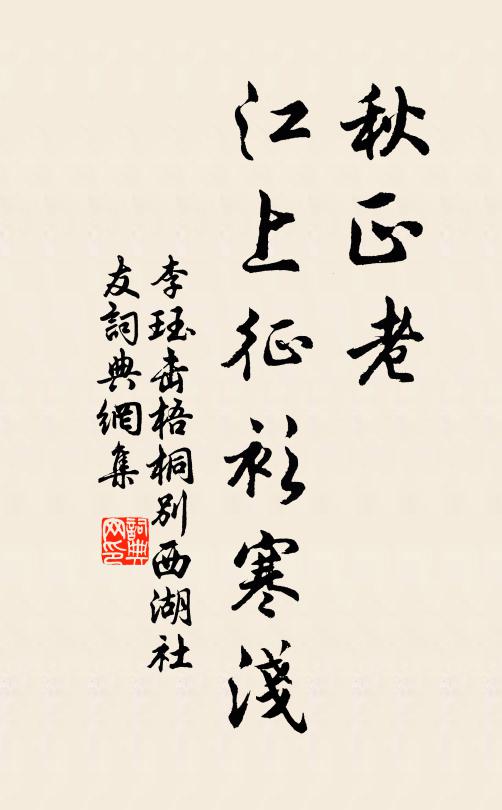 秋正老
江上征衫寒淺
李珏击梧桐別西湖社
友詞典網集
詞典
网印